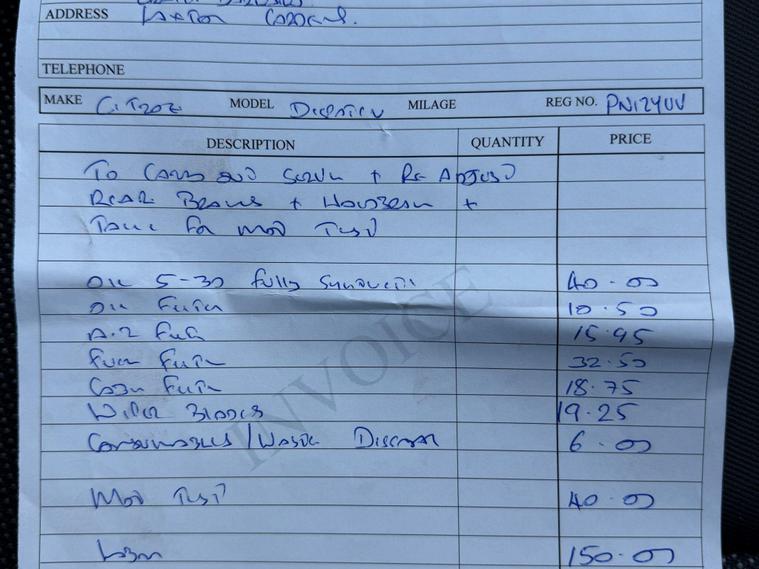 ADDRESS
TELEPHONE
MAKE CiTROE MODEL DISPATCH MILAGE REG NO. PN12YUV
DESCRIPTION QUANTITY PRICE
To CARRY OUT SERVICE + RE ADJUST
REAR BRAKES + HANDBRAKE +
TAKE FOR MOT TEST
OIL 5-30 FULLY SYNTHETIC 40.00
OIL FILTER 10.50
AIR FILTER 15.95
FUEL FILTER 32.50
CABIN FILTER 18.75
WIPER BLADES 19.25
CONSUMABLES / WASTE DISPOSAL 6.00
MOT TEST 40.00
LABOUR 150.00
INVOICE